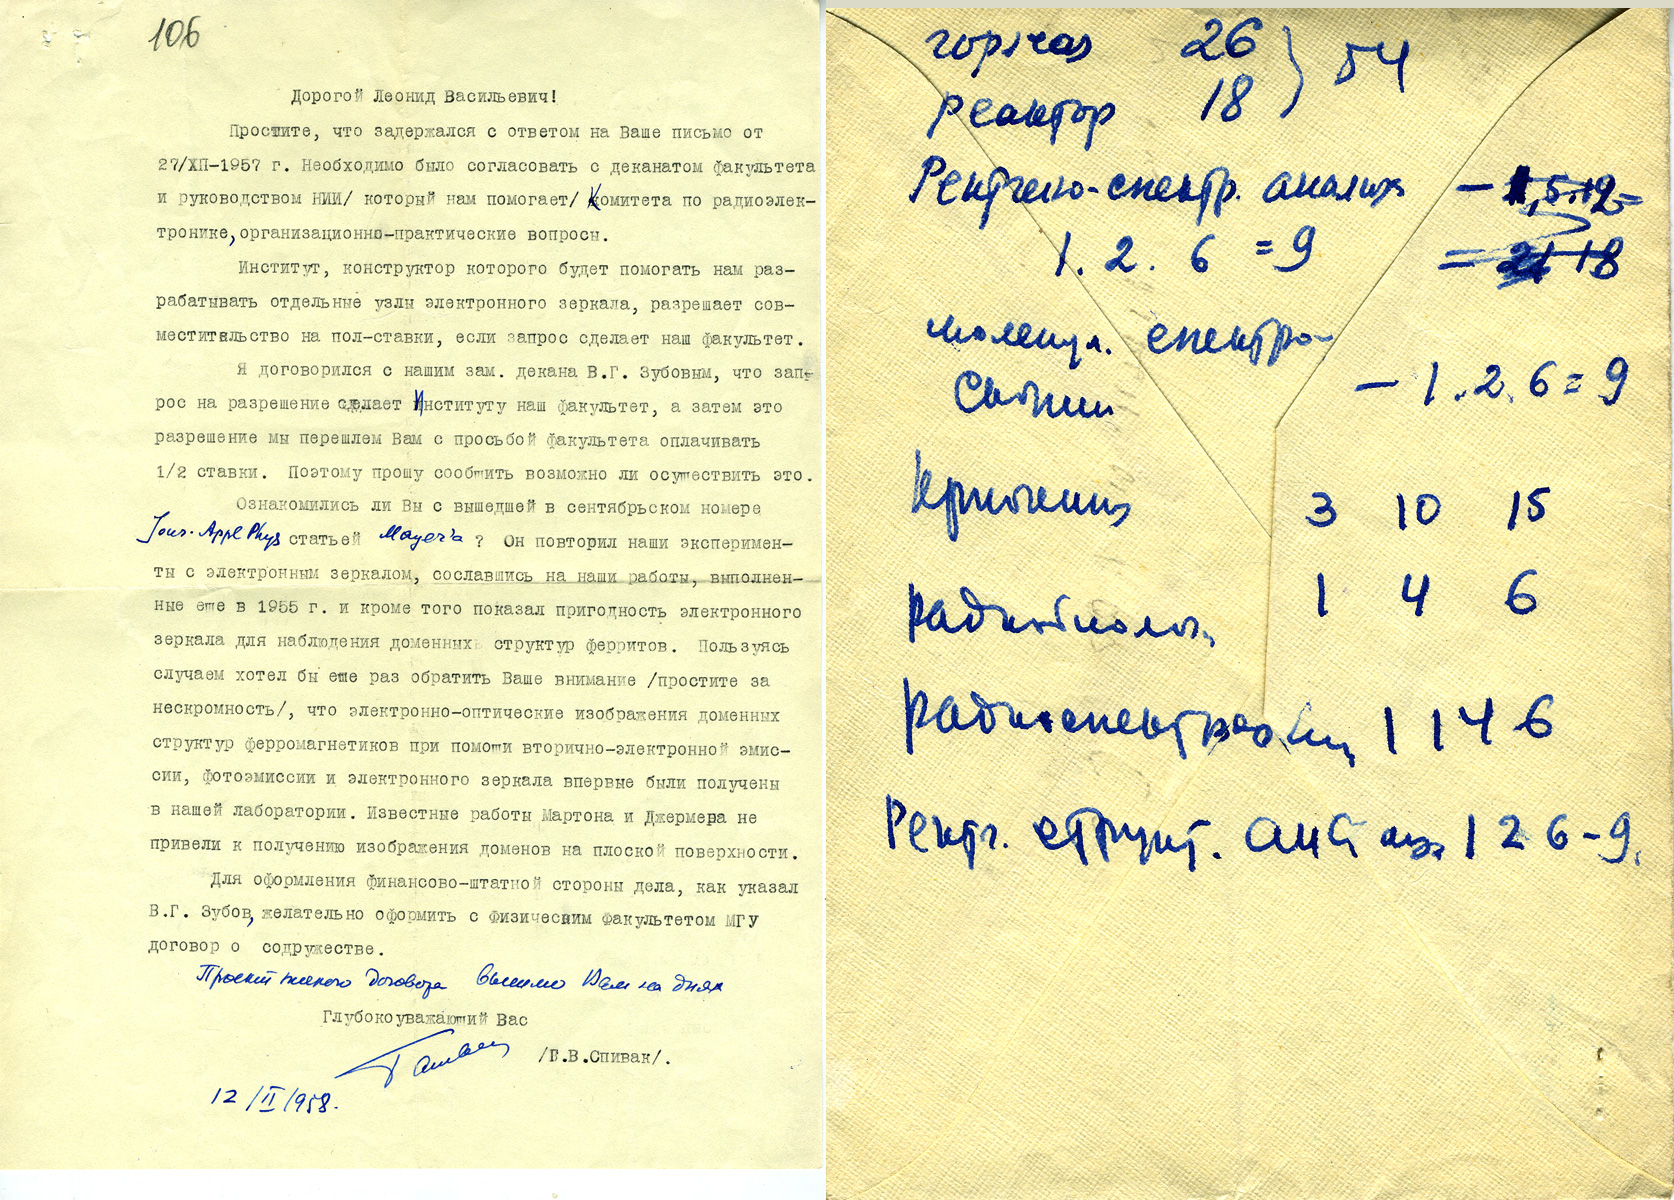 106
Дорогой Леонид Васильевич!
Простите, что задержался с ответом на Ваше письмо от
27/ХП-1957 г. Необходимо было согласовать с деканатом факультета
и руководством НИИ/ который нам помогает/ Комитета по радиоэлек-
тронике, организационно-практические вопросы.
Институт, конструктор которого будет помогать нам раз-
рабатывать отдельные узлы электронного зеркала, разрешает сов-
местительство на пол-ставки, если запрос сделает наш факультет.
Я договорился с нашим зам. декана В.Г. Зубовым, что зап-
рос на разрешение сделает Институту наш факультет, а затем это
разрешение мы перешлем Вам с просьбой факультета оплачивать
1/2 ставки. Поэтому прошу сообщить возможно ли осуществить это.
Ознакомились ли Вы с вышедшей в сентябрьском номере
Jour. Appl Phys статьей Mayer'а ? Он повторил наши эксперимен-
ты с электронным зеркалом, сославшись на наши работы, выполнен-
ные еще в 1955 г. и кроме того показал пригодность электронного
зеркала для наблюдения доменных структур ферритов. Пользуясь
случаем хотел бы еще раз обратить Ваше внимание /простите за
нескромность/, что электронно-оптические изображения доменных
структур ферромагнетиков при помощи вторично-электронной эмис-
сии, фотоэмиссии и электронного зеркала впервые были получены
в нашей лаборатории. Известные работы Мартона и Джермера не
привели к получению изображения доменов на плоской поверхности.
Для оформления финансово-штатной стороны дела, как указал
В.Г. Зубов, желательно оформить с Физическим факультетом МГУ
договор о содружестве.
Проект такого договора вышлю Вам на днях
Глубокоуважающий Вас
/Г.В.Спивак/.
12/II/1958.
горячая 26 } 54
реактор 18
Рентгено-спектр. анализ –
1. 2. 6 = 9 = 18
молекул. спектро-
скопии – 1. 2. 6 = 9
3 10 15
1 4 6
радиоспектроскоп 1 1 4 6
Рентг. структ. анализ 1 2 6 – 9.